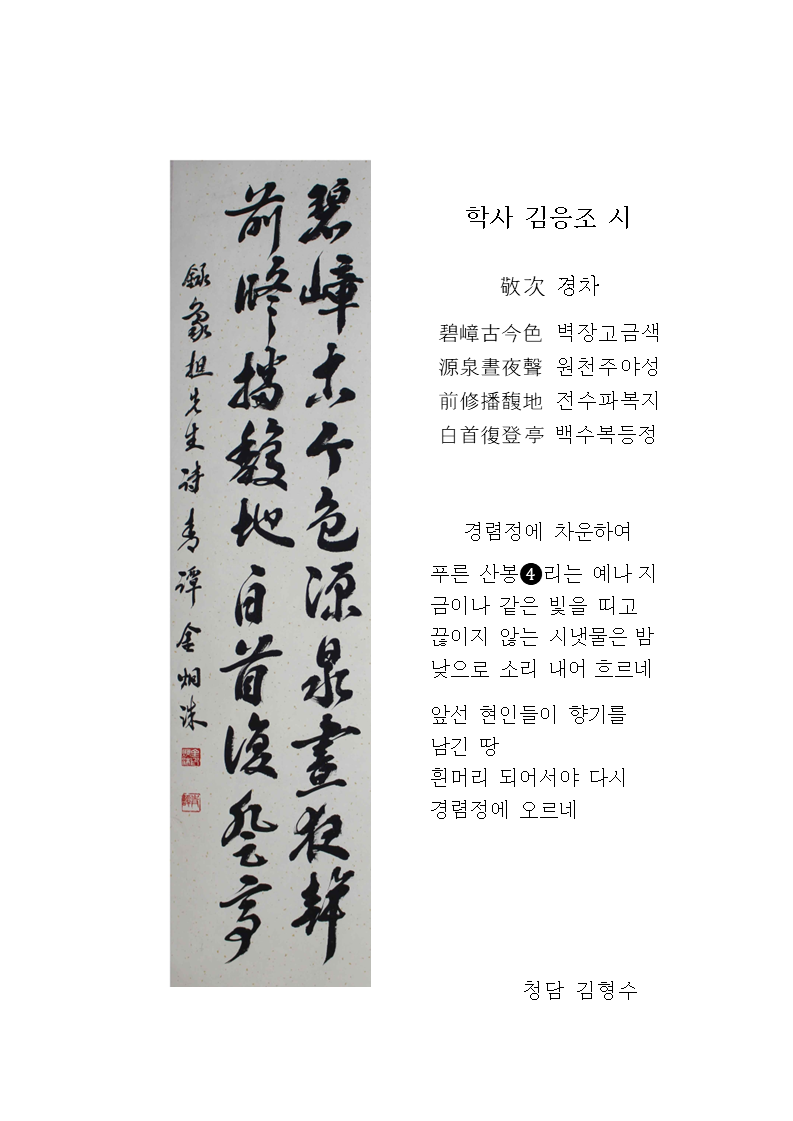 碧嶂古今色源泉晝夜聲
前修播馥地白首復登亭
錄象担先生詩 靑譚 金炯洙
학사 김응조 시
敬次 경차
碧嶂古今色 벽장고금색
源泉晝夜聲 원천주야성
前修播馥地 전수파복지
白首復登亭 백수복등정
경렴정에 차운하여
푸른 산봉❹리는 예나 지
금이나 같은 빛을 띠고
끊이지 않는 시냇물은 밤
낮으로 소리 내어 흐르네
앞선 현인들이 향기를
남긴 땅
흰머리 되어서야 다시
경렴정에 오르네
청담 김형수